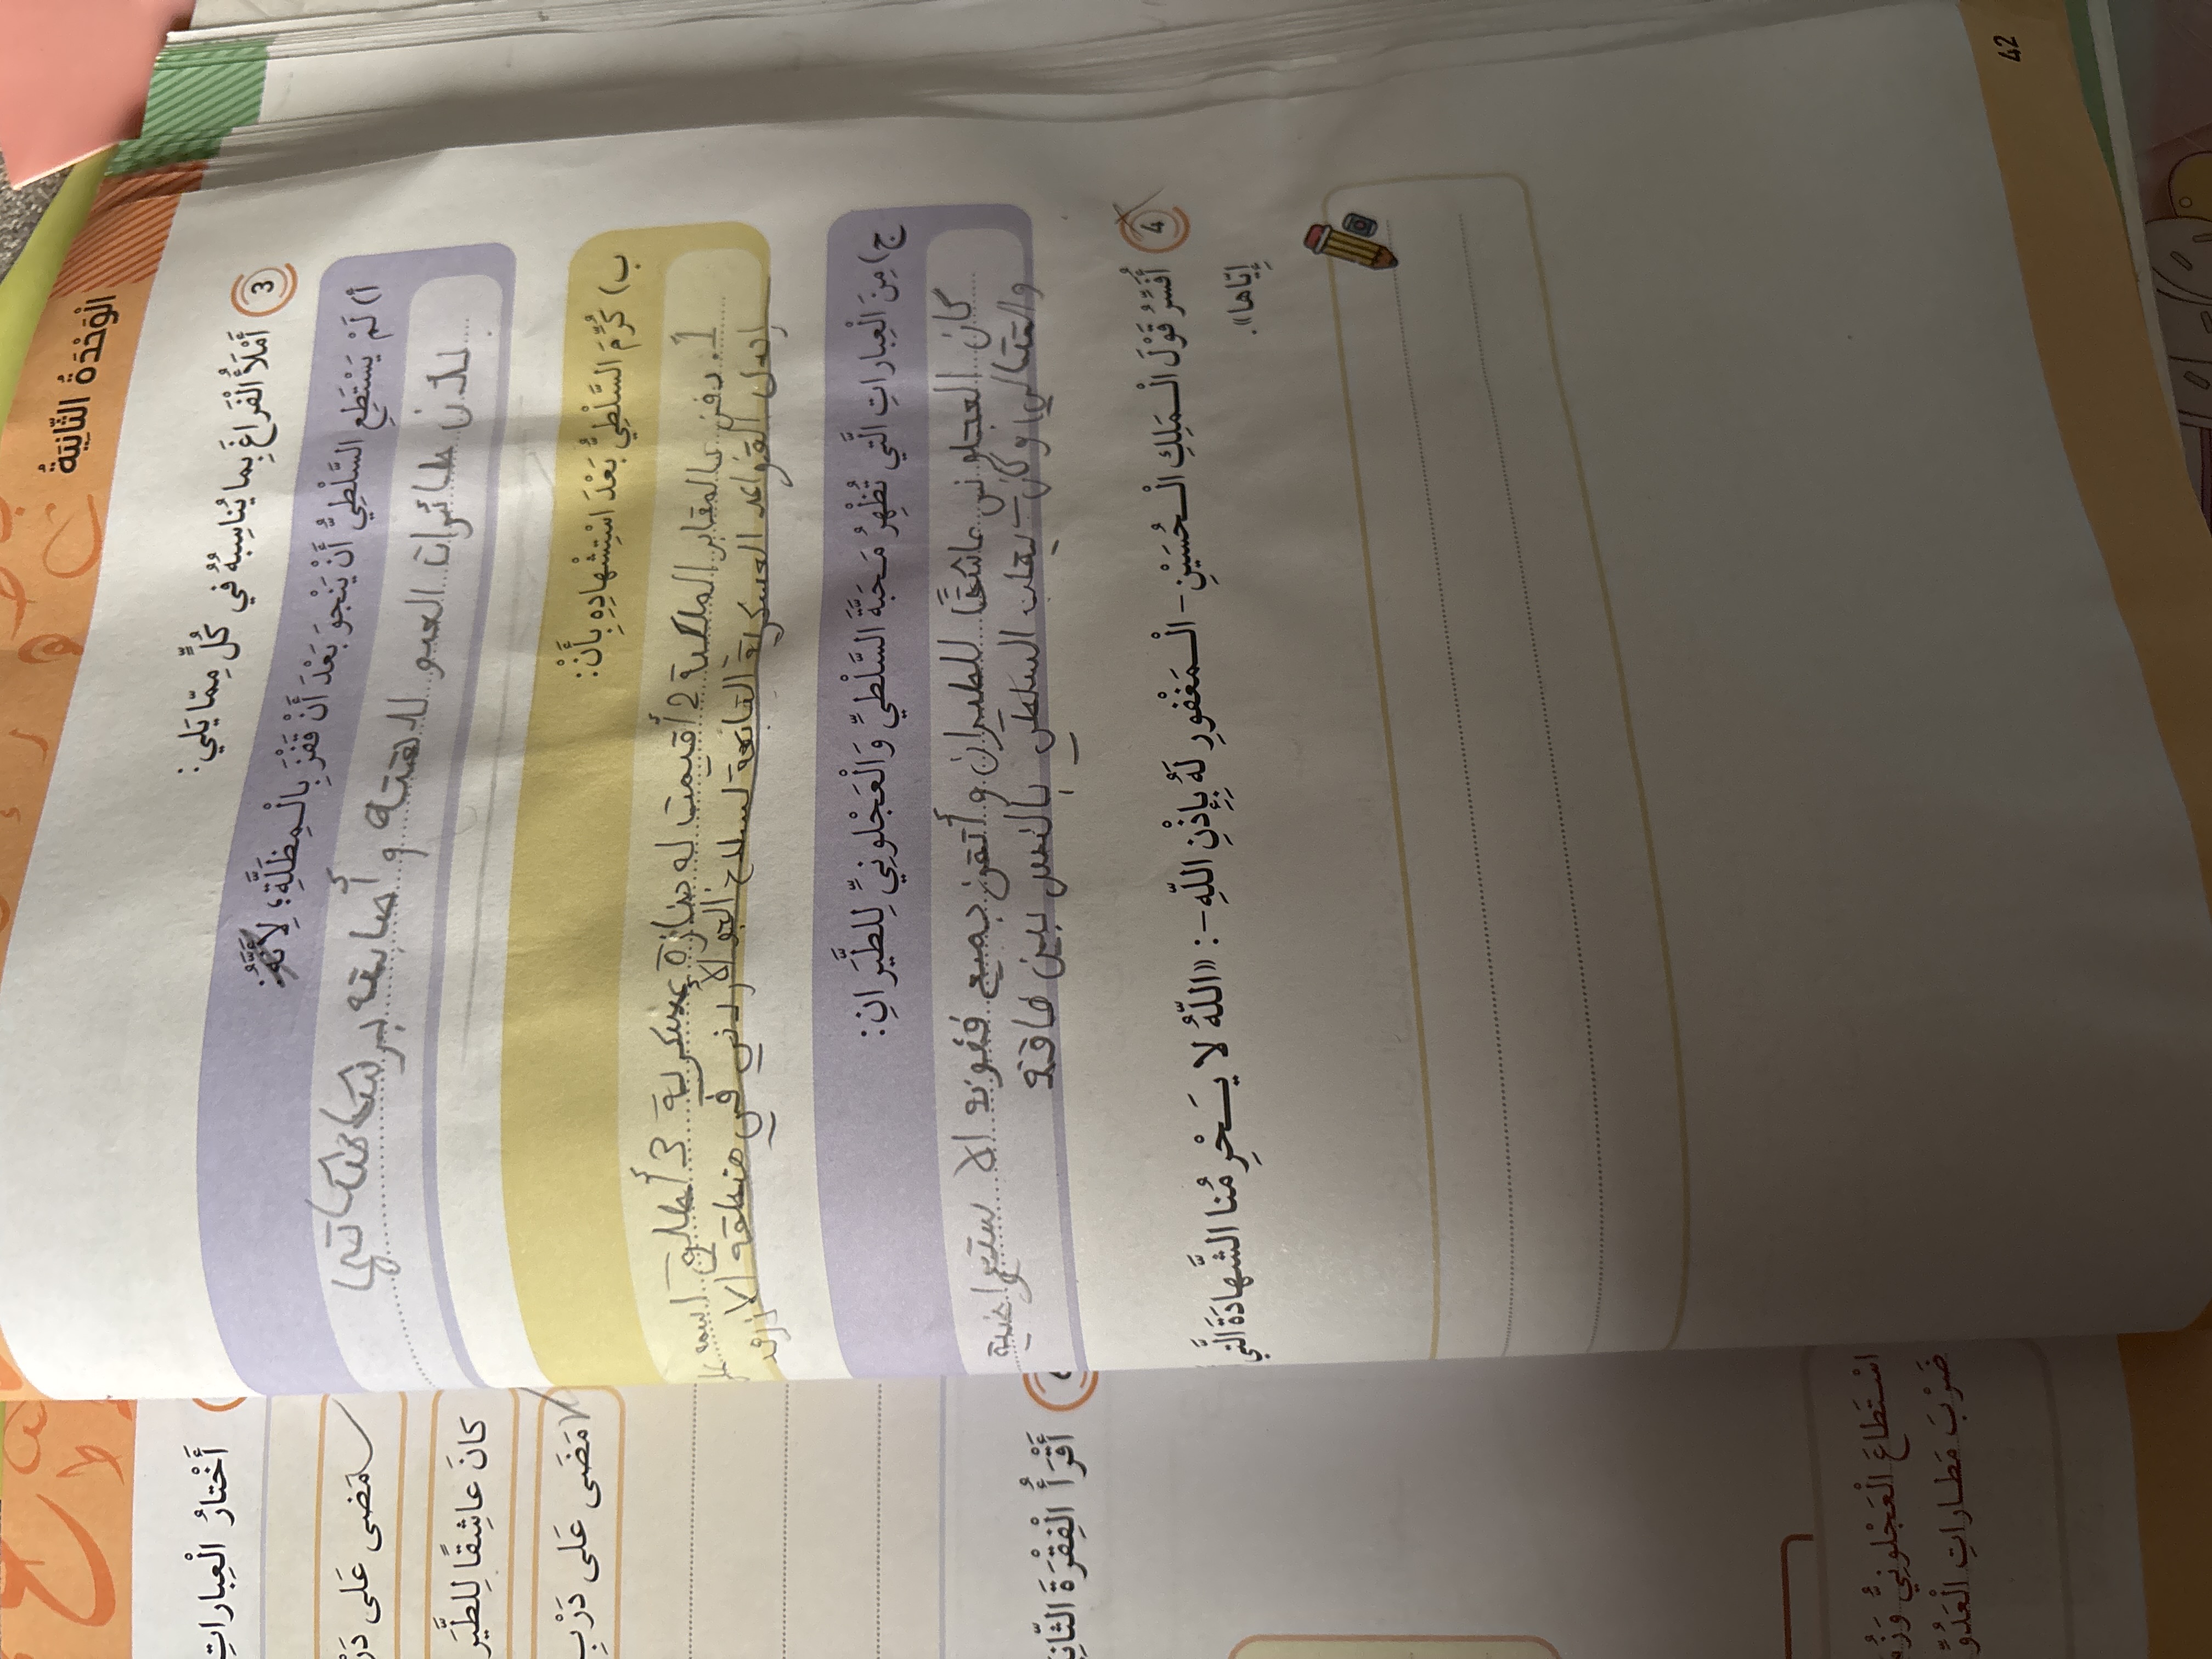 الْوَحْدَةُ الثّانِيَةُ
3 أَمْلَأُ الْفَراغَ بِما يُناسِبُهُ في كُلٍّ مِمّا يَلي:
أ) لَمْ يَسْتَطِعِ السَّلْطِيُّ أَنْ يَنْجُوَ بَعْدَ أَنْ قَفَزَ بِالْمِظَلَّةِ؛ لِأَنَّهُ:
لدن طائرات العدو لاحقته و أصابته برشاشاتها
ب) كُرِّمَ السَّلْطِيُّ بَعْدَ اسْتِشْهادِهِ بِأَنْ:
1. دفن بالمقابر الملكية 2 أقيمت له جنازة عسكرية 3 أطلق اسمه على
إحدى القواعد العسكرية التابعة لسلاح الجو الأردني في منطقة الأزرق
ج) مِنَ الْعِباراتِ الَّتي تُظْهِرُ مَحَبَّةَ السَّلْطِيِّ وَالْعَجْلونِيِّ لِلطَّيَرانِ:
كان العجلوني عاشقًا للطيران و أتقن جميع فنونه الاستعراضية
والقتالية وكان يلقب السلطي بالنسر بين رفاقه
4 أُفَسِّرُ قَوْلَ الْمَلِكِ الْحُسَيْنِ - الْمَغْفورِ لَهُ بِإِذْنِ اللّهِ -: «اللّهُ لا يَحْرِمُنا الشَّهادَةَ الَّتي
إِيّاها».
42
أَخْتارُ الْعِباراتِ
مَضى عَلى
كانَ عاشِقًا لِلطَّيَر
مَضَى عَلى دَرْبِ
أَقْرَأُ الْفِقْرَةَ
اسْتَطاعَ الْعَجْلونِيُّ
ضَرْبَ مَطاراتِ الْعَدُوِّ